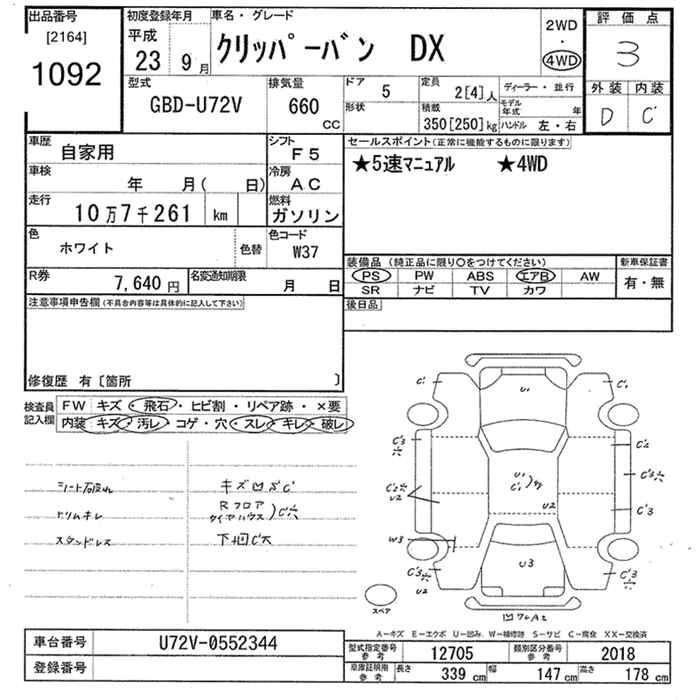 出品番号
[2164]
1092
初度登録年月
平成
23 9月
車名・グレード
クリッパーバン DX
2WD
・
4WD
評価点
3
外装 内装
D C
型式
GBD-U72V
排気量
660
CC
ドア
5
形状
定員
2[4]人
積載
350[250]kg
ディーラー・並行
モデル年式 年
ハンドル 左・右
車歴
自家用
シフト
F5
車検
年 月( 日)
冷房
AC
走行
10万7千261 km
燃料
ガソリン
色
ホワイト
色替
色コード
W37
R券
7,640円
名変通知期限
月 日
セールスポイント(正常に機能するものに限ります)
★5速マニュアル ★4WD
装備品(純正品に限り〇をつけてください)
PS PW ABS エアB AW
SR ナビ TV カワ
新車保証書
有・無
後日品
注意事項申告欄(不具合内容等は具体的に記入して下さい)
修復歴 有〔箇所 〕
検査員
記入欄
FW キズ・飛石・ヒビ割・リペア跡・×要
内装・キズ・汚レ・コゲ・穴・スレ・キレ・破レ
シート石皮れ
トリムキレ
スタンドレス
キズ凹S C'
Rフロア
タイヤハウス)C'穴
下回C大
C'
U1
C'
C'3
穴
C'2
C'2穴
U2
U1
C'
U2
C'2穴
C'3
W3
C'3穴
U2
U3
C'3
穴
スペア
A-キズ E-エクボ U-凹み W-補修跡 S-サビ C-腐食 XX-交換済
車台番号
U72V-0552344
登録番号
型式指定番号
参考
12705
類別区分番号
参考
2018
車庫証明用
参考
長さ
339 cm
幅
147 cm
高さ
178 cm